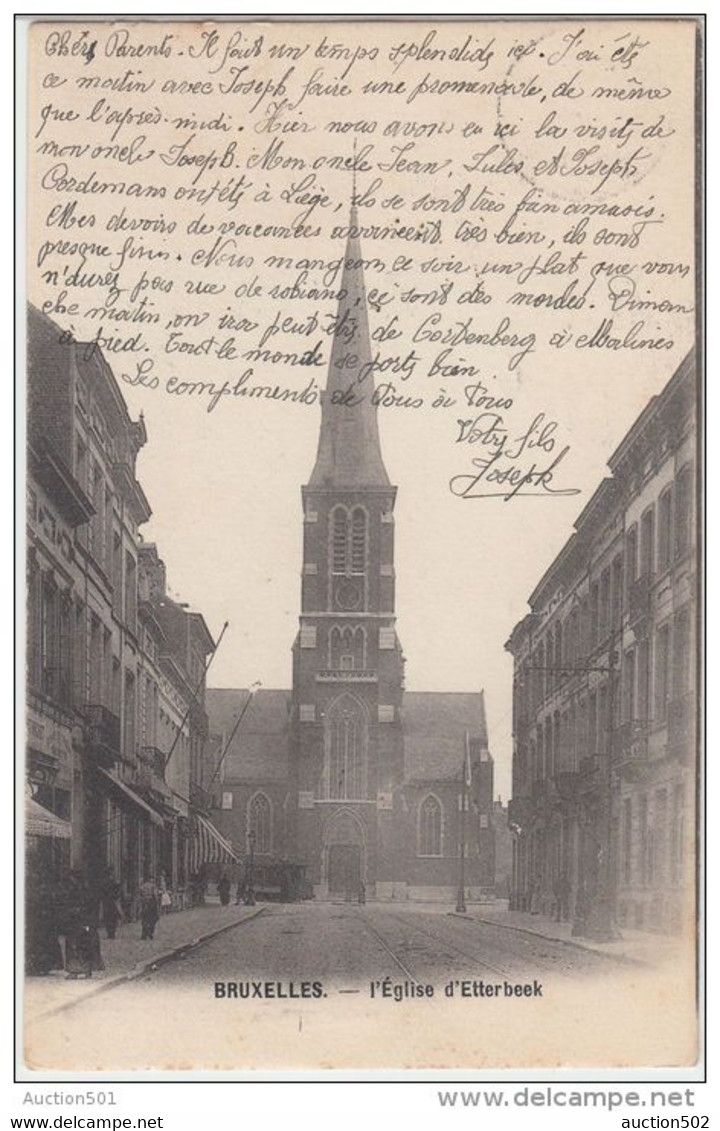 Chérs Parents. Il fait un temps splendide ici. J'ai étés
ce matin avec Joseph faire une promenade, de même
que l'après-midi. Hier nous avons eu ici la visite de
mon oncle Joseph. Mon oncle Jean, Jules et Joseph
Cordemans ont étés à Liège, ils se sont très bien amusés.
Mes devoirs de vacances avancent très bien, ils sont
presque finis. Nous mangeons ce soir un plat que vous
n'aurez pas vue de, ce sont des. Diman
che matin, on ira peut être de Cortenberg à Malines
à pied. Tout le monde se porte bien.
Les compliments de Tous à Tous
Votre fils
Joseph
BRUXELLES. — l'Église d'Etterbeek
Auction501
delcampe.net
auction502